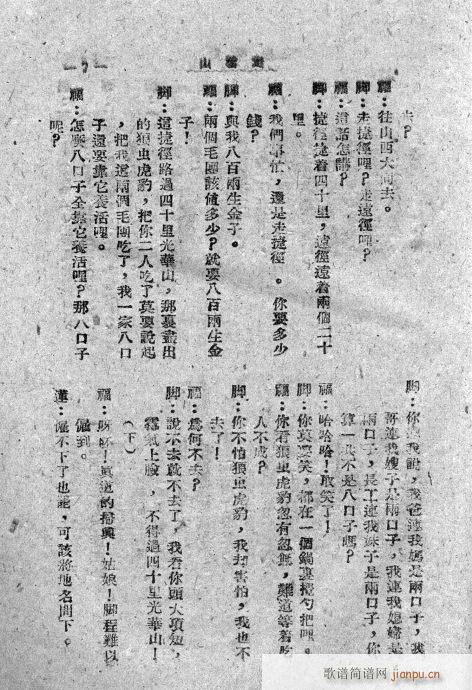 去？
福：往山西大同去。
脚：走捷徑哩？走遠徑哩？
福：這話怎講？
脚：捷徑捷着四十里，遠徑遠着兩個二十
里。
福：我們事忙，還是走捷徑。你要多少
錢？
脚：與我八百兩生金子。
福：兩個毛團該値多少？就要八百兩生金
子！
脚：這捷徑路過四十里光華山，那裏盡出
的狼虫虎豹，把你二人吃了莫要說起
，把我這兩個毛團吃了，我一家八口
子還要靠它養活哩。
福：怎麼八口子全靠它養活哩？那八口子
呢？
脚：你聽我說，我爸連我媽是兩口子，我
哥連我嫂子是兩口子，我連我媳婦是
兩口子，長工連我妹子是兩口子，你
算一共不是八口子嗎？
福：哈哈哈！取笑了！
脚：你莫要笑，都在一個鍋裏攪勺把哩。
福：你看狼虫虎豹忽有忽無，難道等着吃
人不成？
脚：你不怕狼虫虎豹，我却害怕，我也不
去了！
福：為何不去？
脚：說不去就不去了，我看你頭大項短，
霧氣上臉，不得過四十里光華山！
（下）
福：呀呀！真道的掃興！姑娘！脚程難以
僱到。
蓮：僱不下了也罷，可該將地名問下。
歌谱简谱网
jianpu.cn